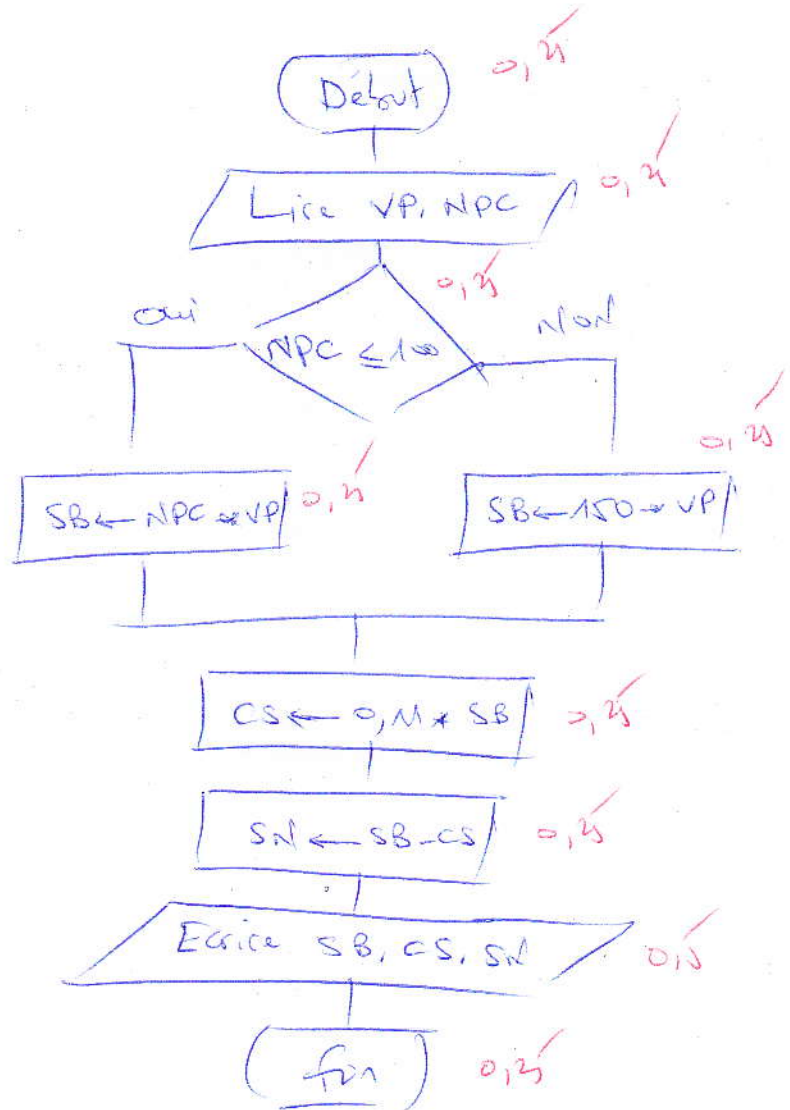 Début 0,25
Lire VP, NPC 0,25
0,25
Oui NON
NPC ≤ 100
0,25
SB ← NPC * VP 0,25 SB ← 150 * VP
CS ← 0,11 * SB 0,25
SN ← SB - CS 0,25
Ecrire SB, CS, SN 0,5
fin 0,25